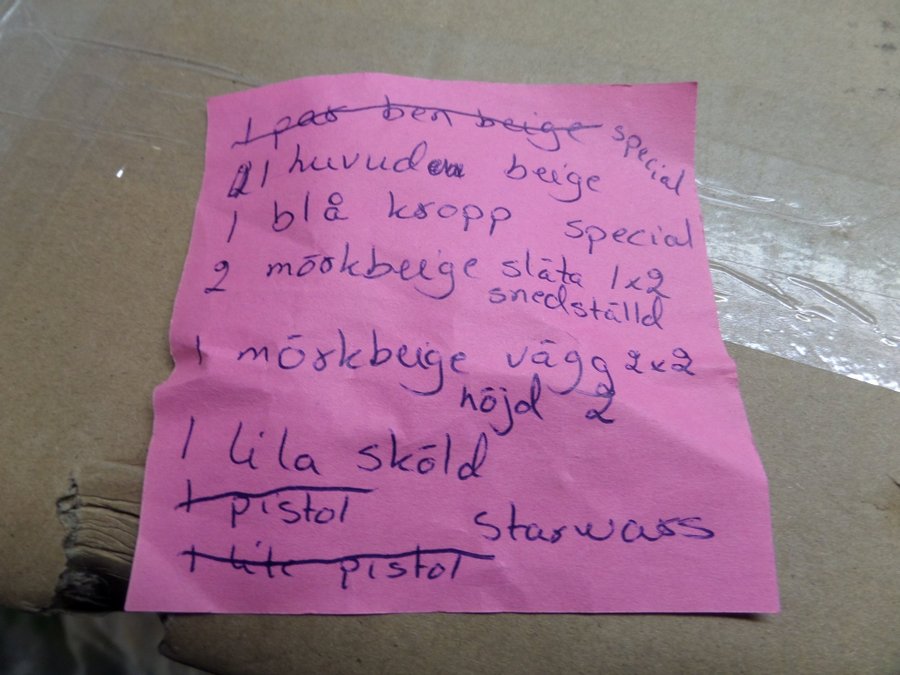 1 par ben beige special
21 huvuden beige
1 blå kropp special
2 mörkbeige släta 1x2
snedställd
1 mörkbeige vägg 2x2
höjd 2
1 lila sköld
1 pistol
starwars
1 lite pistol